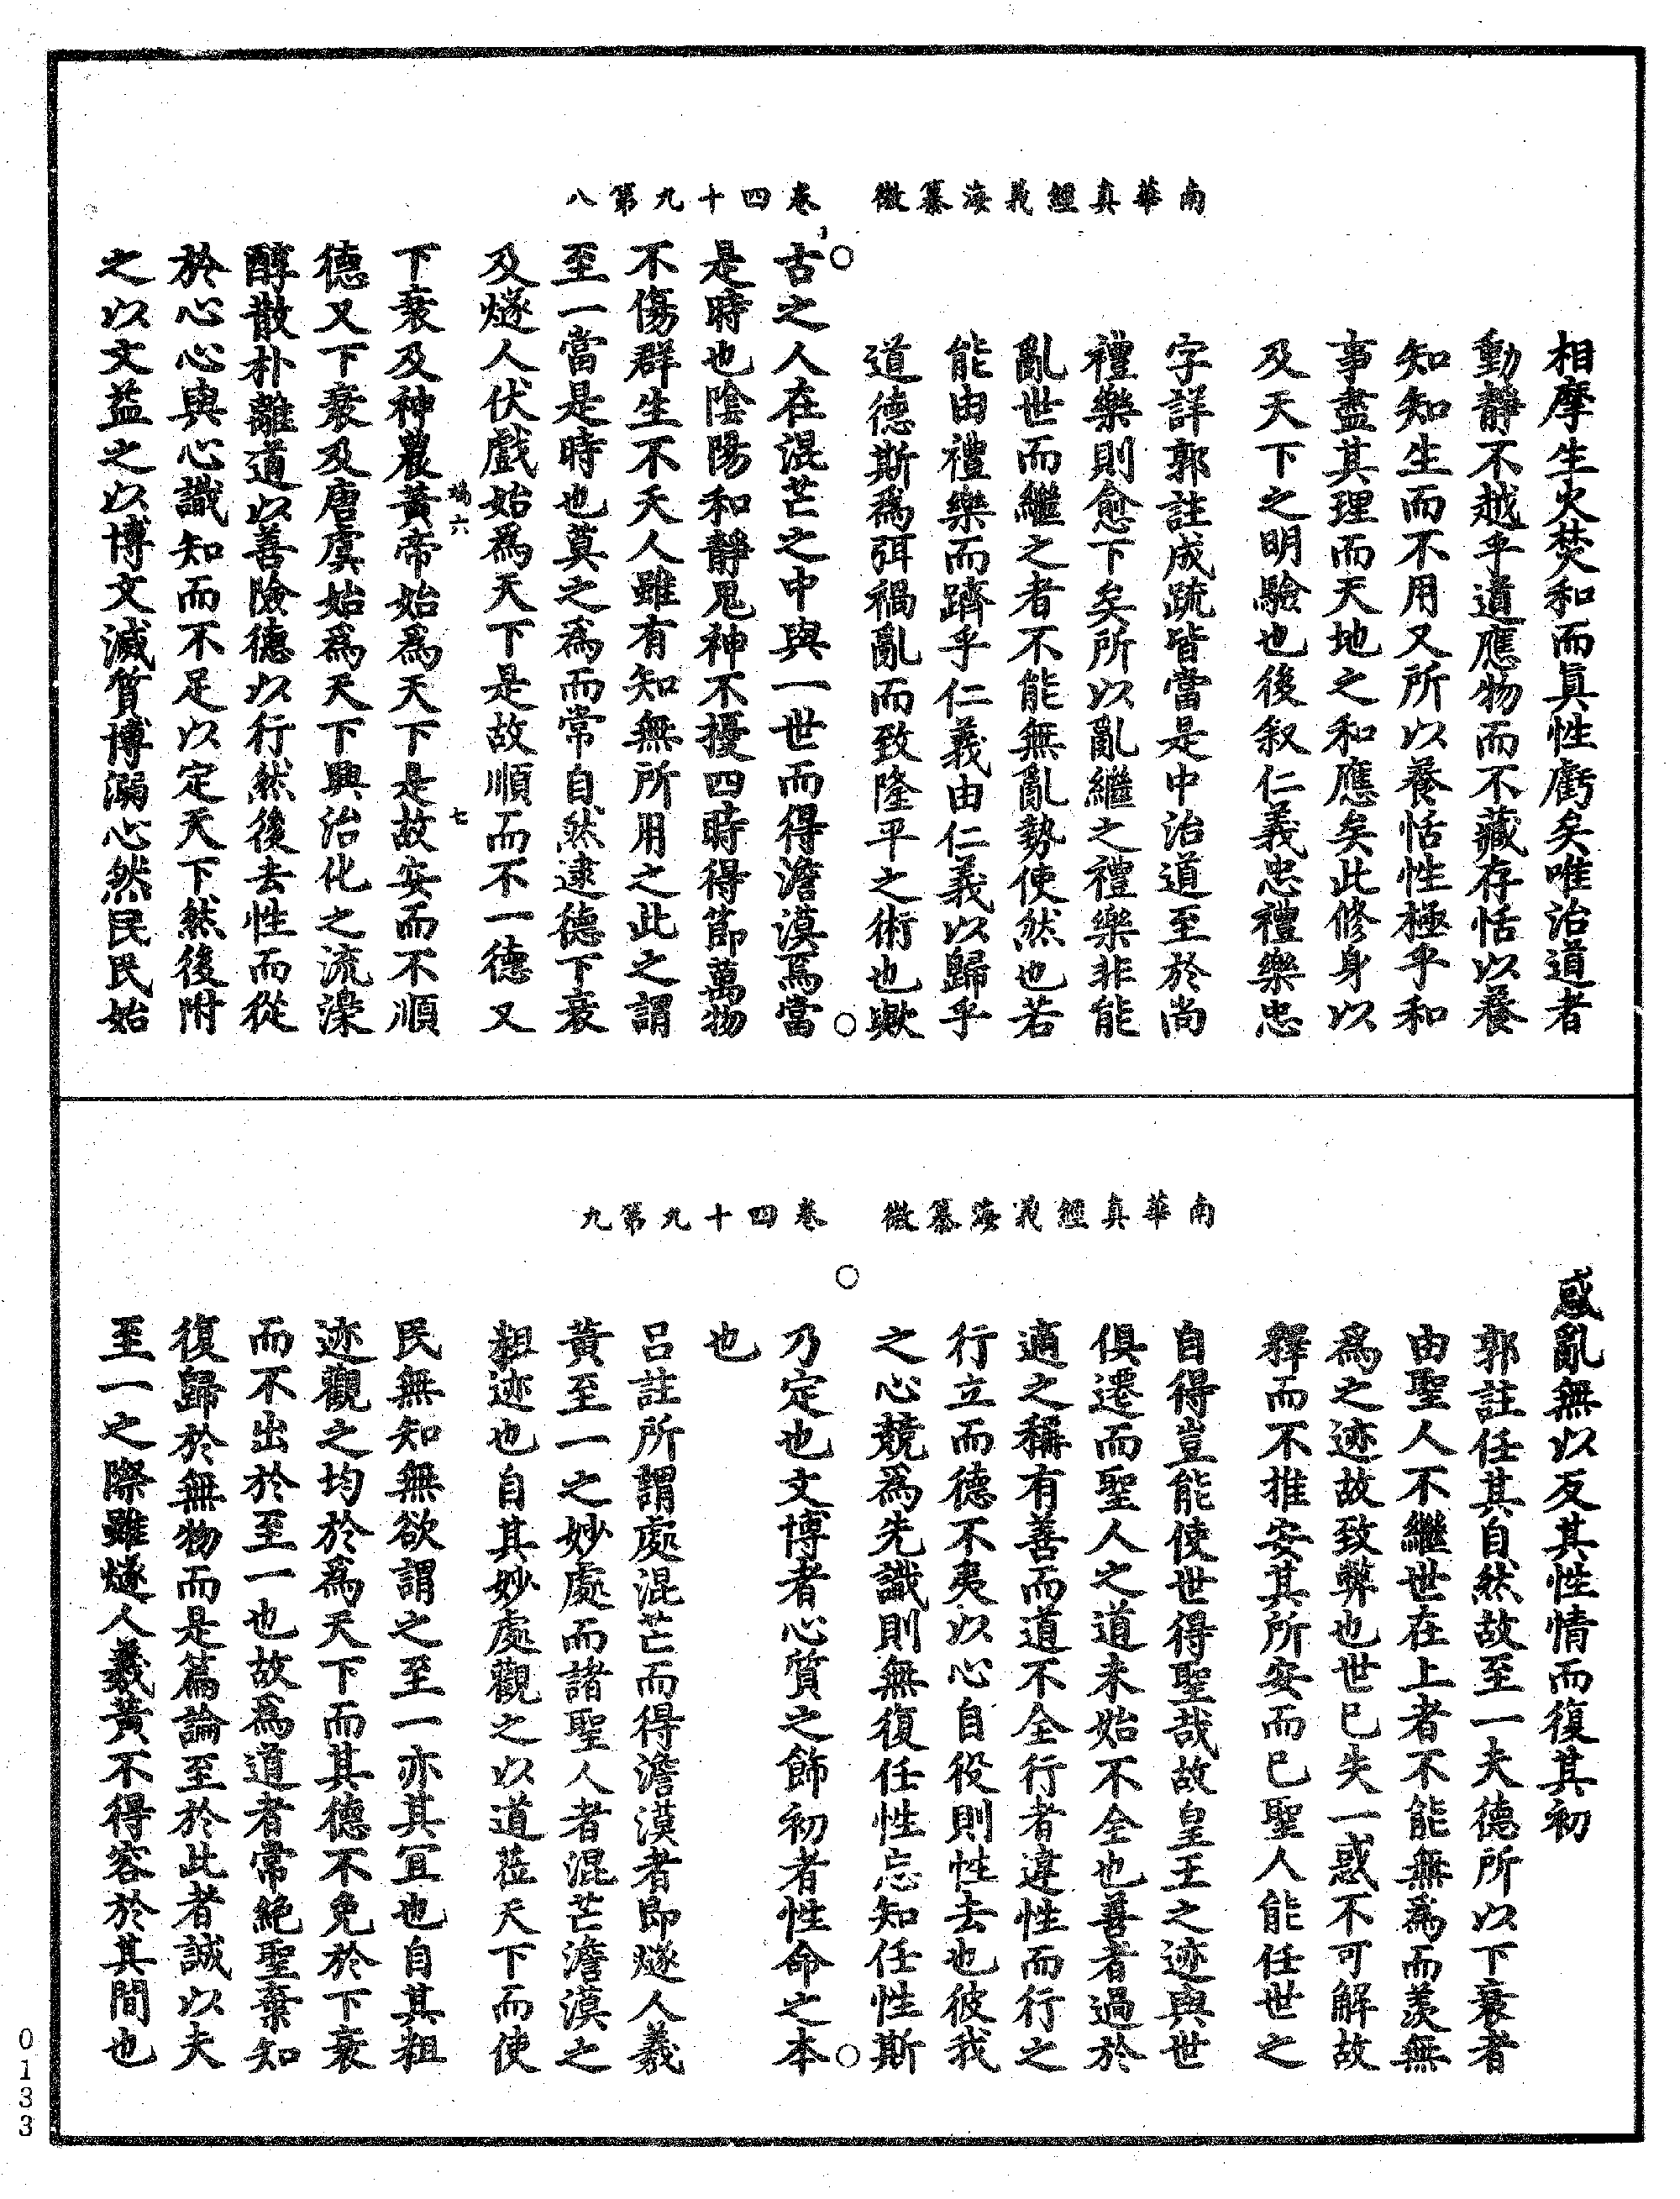 南華真經義海纂微　卷四十九第八
相摩生火焚和而真性虧矣唯治道者
動靜不越乎道應物而不藏存恬以養
知知生而不用又所以養恬性極乎和
事盡其理而天地之和應矣此修身以
及天下之明驗也後叙仁義忠禮樂忠
字詳郭註成疏皆當是中治道至於尚
禮樂則愈下矣所以亂繼之禮樂非能
亂世而繼之者不能無亂勢使然也若
能由禮樂而躋乎仁義由仁義以歸乎
道德斯為弭禍亂而致隆平之術也歟
古之人在混芒之中與一世而得澹漠焉當
是時也陰陽和靜鬼神不擾四時得節萬物
不傷群生不夭人雖有知無所用之此之謂
至一當是時也莫之為而常自然逮德下衰
及燧人伏戲始為天下是故順而不一德又
下衰及神農黃帝始為天下是故安而不順
德又下衰及唐虞始為天下興治化之流澆
醇散朴離道以善險德以行然後去性而從
於心心與心識知而不足以定天下然後附
之以文益之以博文滅質博溺心然民民始
南華真經義海纂微　卷四十九第九
惑亂無以反其性情而復其初
郭註任其自然故至一夫德所以下衰者
由聖人不繼世在上者不能無為而羨無
為之迹故致弊也世已失一惑不可解故
釋而不推安其所安而已聖人能任世之
自得豈能使世得聖哉故皇王之迹與世
俱遷而聖人之道未始不全也善者過於
適之稱有善而道不全行者違性而行之
行立而德不夷以心自役則性去也彼我
之心競為先識則無復任性忘知任性斯
乃定也文博者心質之飾初者性命之本
也
呂註所謂處混芒而得澹漠者即燧人羲
黃至一之妙處而諸聖人者混芒澹漠之
粗迹也自其妙處觀之以道蒞天下而使
民無知無欲謂之至一亦其宜也自其粗
迹觀之均於為天下而其德不免於下衰
而不出於至一也故為道者常絕聖棄知
復歸於無物而是篇論至於此者誠以夫
至一之際雖燧人羲黃不得容於其間也
0133